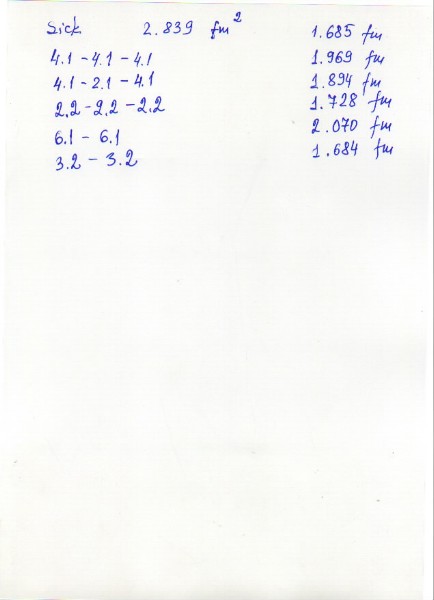 Sick 2.839 fm² 1.685 fm
4.1 - 4.1 - 4.1 1.969 fm
4.1 - 2.1 - 4.1 1.894 fm
2.2 - 2.2 - 2.2 1.728 fm
6.1 - 6.1 2.070 fm
3.2 - 3.2 1.684 fm